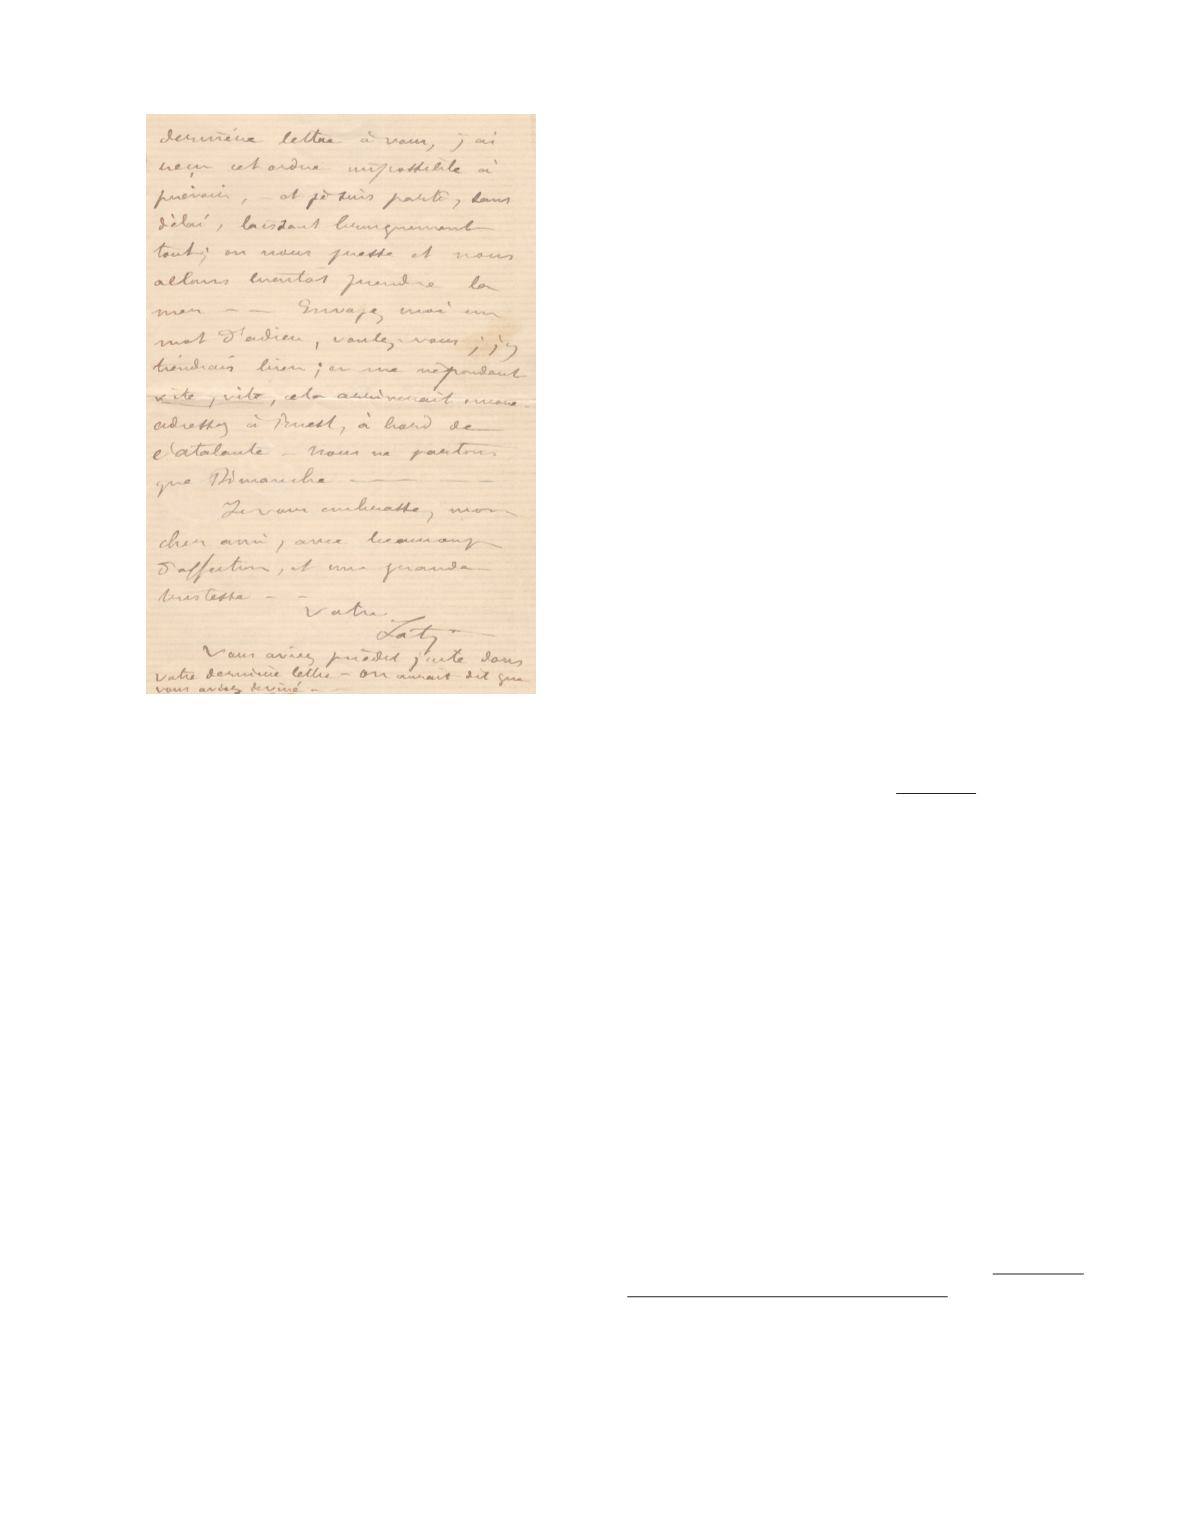 dernière lettre à vous, j'ai
reçu cet ordre impossible à
prévoir, – et je suis parti, sans
délai, laissant brusquement
tout; on nous presse et nous
allons bientôt prendre la
mer – – Envoyez moi un
mot d'adieu, voulez-vous ; j'y
tiendrais bien ; en me répondant
vite, vite, cela arriverait encore.
adressez à Brest, à bord de
l'atalante – Nous ne partons
que Dimanche – – –
Je vous embrasse, mon
cher ami, avec beaucoup
d'affection, et une grande
tristesse – –
Votre
Loti
Vous aviez prédit juste dans
votre dernière lettre – On aurait dit que
vous aviez deviné –